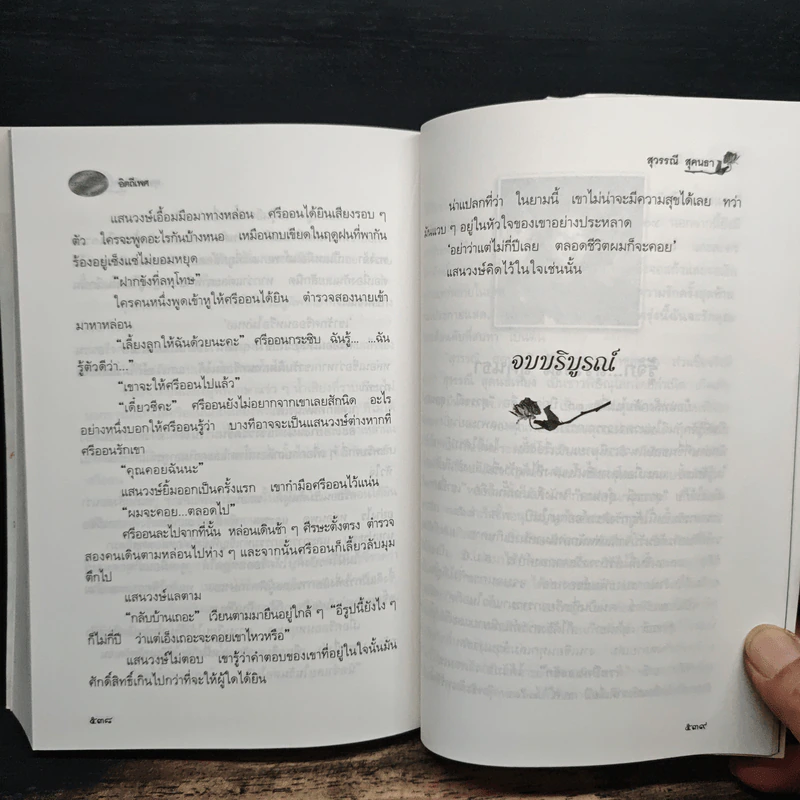 อิตถีเพศ
แสนวงษ์เอื้อมมือมาทางหล่อน ศรีออนได้ยินเสียงรอบ ๆ
ตัว ใครจะพูดอะไรกันบ้างหนอ เหมือนกบเขียดในฤดูฝนที่พากัน
ร้องอยู่เซ็งแซ่ไม่ยอมหยุด
“ฝากขังที่ลหุโทษ”
ใครคนหนึ่งพูดเข้าหูให้ศรีออนได้ยิน ตำรวจสองนายเข้า
มาหาหล่อน
“เลี้ยงลูกให้ฉันด้วยนะคะ” ศรีออนกระซิบ ฉันรู้... ...ฉัน
รู้ตัวดีว่า...”
“เขาจะให้ศรีออนไปแล้ว”
“เดี๋ยวซีคะ” ศรีออนยังไม่อยากจากเขาเลยสักนิด อะไร
อย่างหนึ่งบอกให้ศรีออนรู้ว่า บางทีอาจจะเป็นแสนวงษ์ต่างหากที่
ศรีออนรักเขา
“คุณคอยฉันนะ”
แสนวงษ์ยิ้มออกเป็นครั้งแรก เขากำมือศรีออนไว้แน่น
“ผมจะคอย...ตลอดไป”
ศรีออนละไปจากที่นั้น หล่อนเดินช้า ๆ ศีรษะตั้งตรง ตำรวจ
สองคนเดินตามหล่อนไปห่าง ๆ และจากนั้นศรีออนก็เลี้ยวลับมุม
ตึกไป
แสนวงษ์แลตาม
“กลับบ้านเถอะ” เวียนตามมายืนอยู่ใกล้ ๆ “อีรูปนี้ยังไง ๆ
ก็ไม่กี่ปี ว่าแต่เอ็งเถอะจะคอยเขาไหวหรือ”
แสนวงษ์ไม่ตอบ เขารู้ว่าคำตอบของเขาที่อยู่ในใจนั้นมัน
ศักดิ์สิทธิ์เกินไปกว่าที่จะให้ผู้ใดได้ยิน
๕๓๘
สุวรรณี สุคนธา
น่าแปลกที่ว่า ในยามนี้ เขาไม่น่าจะมีความสุขได้เลย ทว่า
มันแวบ ๆ อยู่ในหัวใจของเขาอย่างประหลาด
‘อย่าว่าแต่ไม่กี่ปีเลย ตลอดชีวิตผมก็จะคอย’
แสนวงษ์คิดไว้ในใจเช่นนั้น
จบบริบูรณ์
๕๓๙